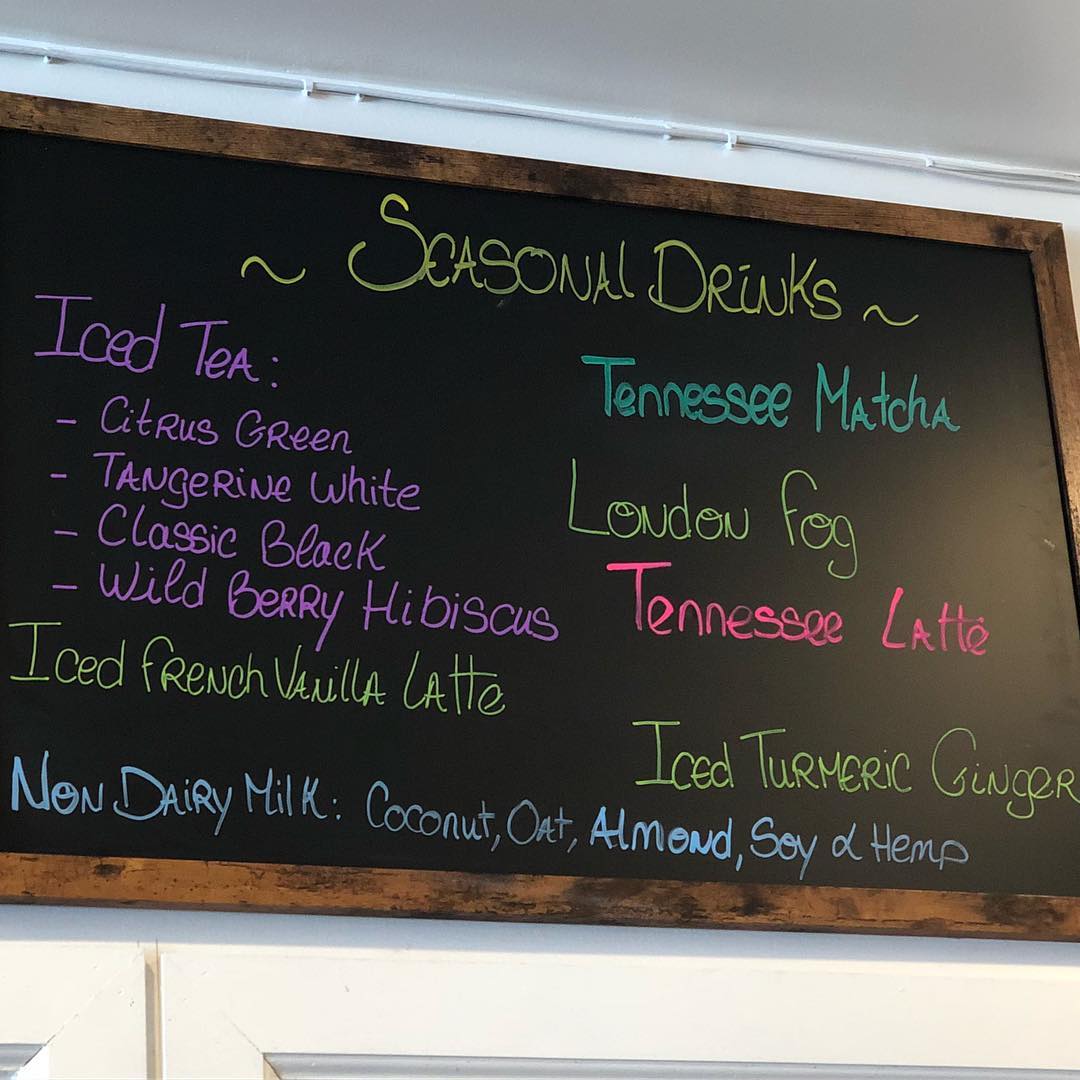 ~ Seasonal Drinks ~
Iced Tea:
- Citrus Green
- Tangerine White
- Classic Black
- Wild Berry Hibiscus
Iced French Vanilla Latte
Tennessee Matcha
London Fog
Tennessee Latte
Iced Turmeric Ginger
Non Dairy Milk: Coconut, Oat, Almond, Soy & Hemp